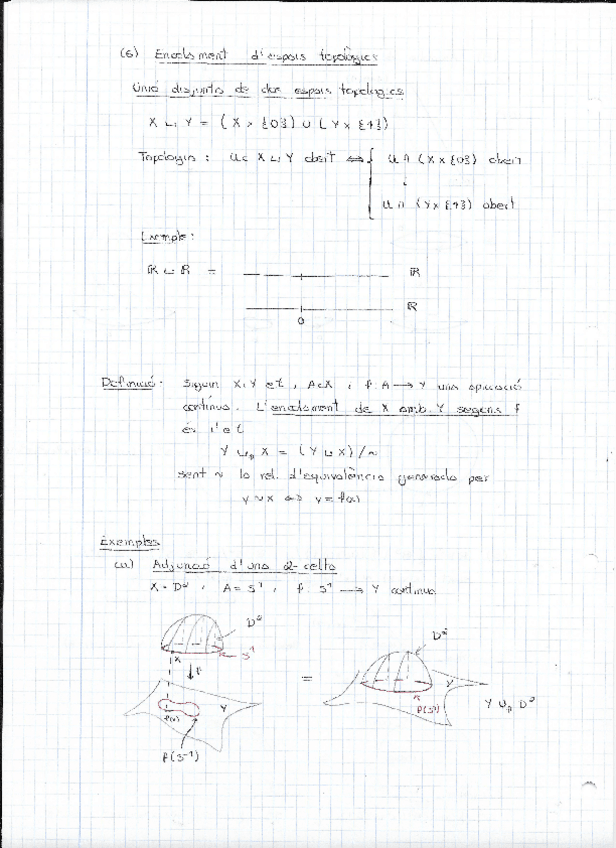 (6) Enganxament d'espais topològics
Unió disjunta de dos espais topològics
X ⊔ Y = (X × {0}) ∪ (Y × {1})
Topologia: U ⊂ X ⊔ Y obert ⟺ { U ∩ (X × {0}) obert
i
U ∩ (Y × {1}) obert
Exemple:
ℝ ⊔ ℝ = ℝ
ℝ
0
Definició: Siguin X, Y e.t., A ⊂ X, f: A → Y una aplicació
contínua. L'enganxament de X amb Y segons f
és l'e.t.
Y ∪f X = (Y ⊔ X)/~
sent ~ la rel. d'equivalència generada per
y ~ x ⟺ y = f(x)
Exemples
(a) Adjunció d'una 2-cel·la
X = D², A = S¹, f: S¹ → Y contínua
D²
S¹
x
f
f(x)
Y
f(S¹)
=
D²
Y
f(S¹)
Y ∪f D²